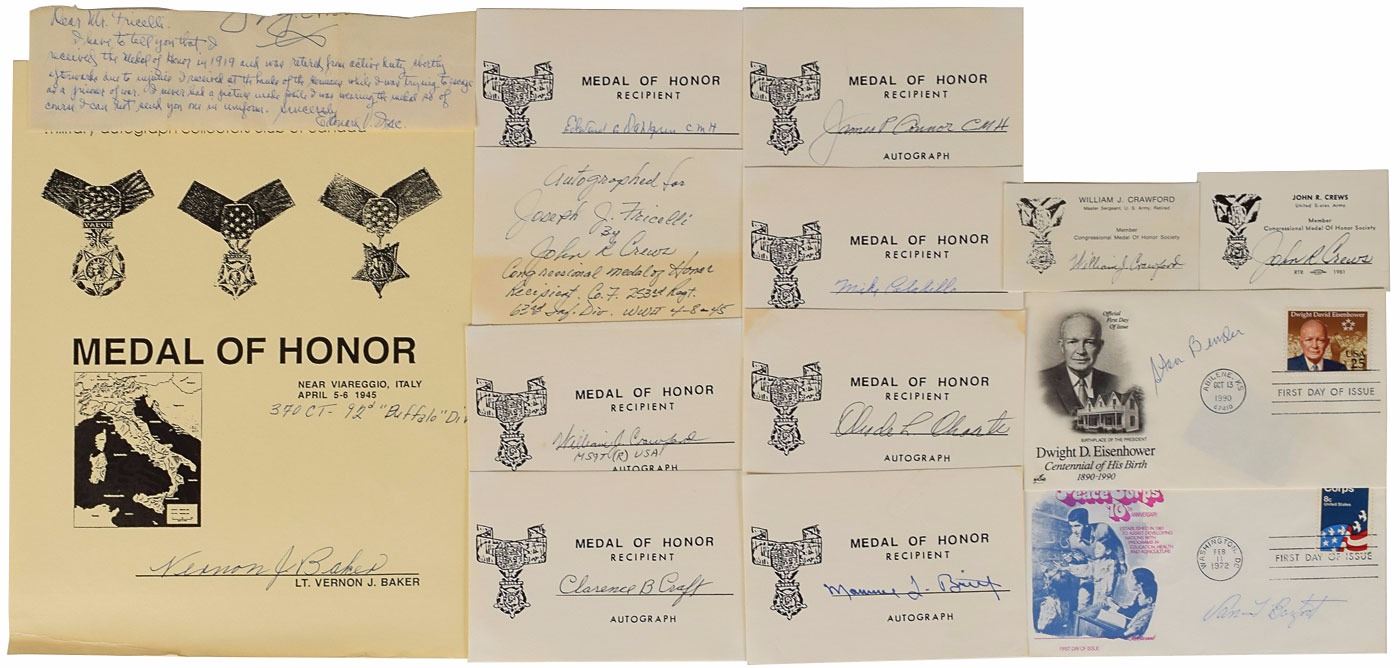 Dear Mr. Fricelli.
I have to tell you that I
received the Medal of Honor in 1919 and was retired from active duty shortly
afterwards due to injuries I received at the hands of the Germans while I was trying to escape
as a prisoner of war. I never had a picture made while I was wearing the medal so of
course I can not send you one in uniform. Sincerely
Edouard V. Izac.
military autograph collectors club of canada
VALOR
MEDAL OF HONOR
NEAR VIAREGGIO, ITALY
APRIL 5-6 1945
370 CT. 92d "Buffalo" Div
Vernon J Baker
LT. VERNON J. BAKER
MEDAL OF HONOR
RECIPIENT
Edward C Dahlgren C M H
Autographed for
Joseph J. Fricelli
By
John R Crews
Congressional medal of Honor
Recipient. Co. F. 253rd Regt.
63rd Inf. Div. WWII 4-8-45
MEDAL OF HONOR
RECIPIENT
William J Crawford
MSGT (R) USA
AUTOGRAPH
MEDAL OF HONOR
RECIPIENT
Clarence B Craft
AUTOGRAPH
MEDAL OF HONOR
RECIPIENT
James P Connor CMH
AUTOGRAPH
MEDAL OF HONOR
RECIPIENT
Mike Colalillo
MEDAL OF HONOR
RECIPIENT
Clyde L Choate
AUTOGRAPH
MEDAL OF HONOR
RECIPIENT
AUTOGRAPH
WILLIAM J. CRAWFORD
Master Sergeant, U. S. Army, Retired
Member
Congressional Medal Of Honor Society
William J Crawford
JOHN R. CREWS
United States Army
Member
Congressional Medal Of Honor Society
John R Crews
RTR 1961
Official
First Day
Of Issue
Stan Bender
ABILENE, KS
OCT 13
1990
67410
Dwight David Eisenhower
USA
25
FIRST DAY OF ISSUE
BIRTHPLACE OF THE PRESIDENT
Dwight D. Eisenhower
Centennial of His Birth
1890-1990
Peace Corps
10TH
ANNIVERSARY
ESTABLISHED IN 1961
TO ASSIST DEVELOPING
NATIONS WITH
PROGRAMS IN
EDUCATION, HEALTH
AND AGRICULTURE
WASHINGTON, DC
FEB
11
1972
Corps
8c
United States
FIRST DAY OF ISSUE
Van T Barfoot
FIRST DAY OF ISSUE